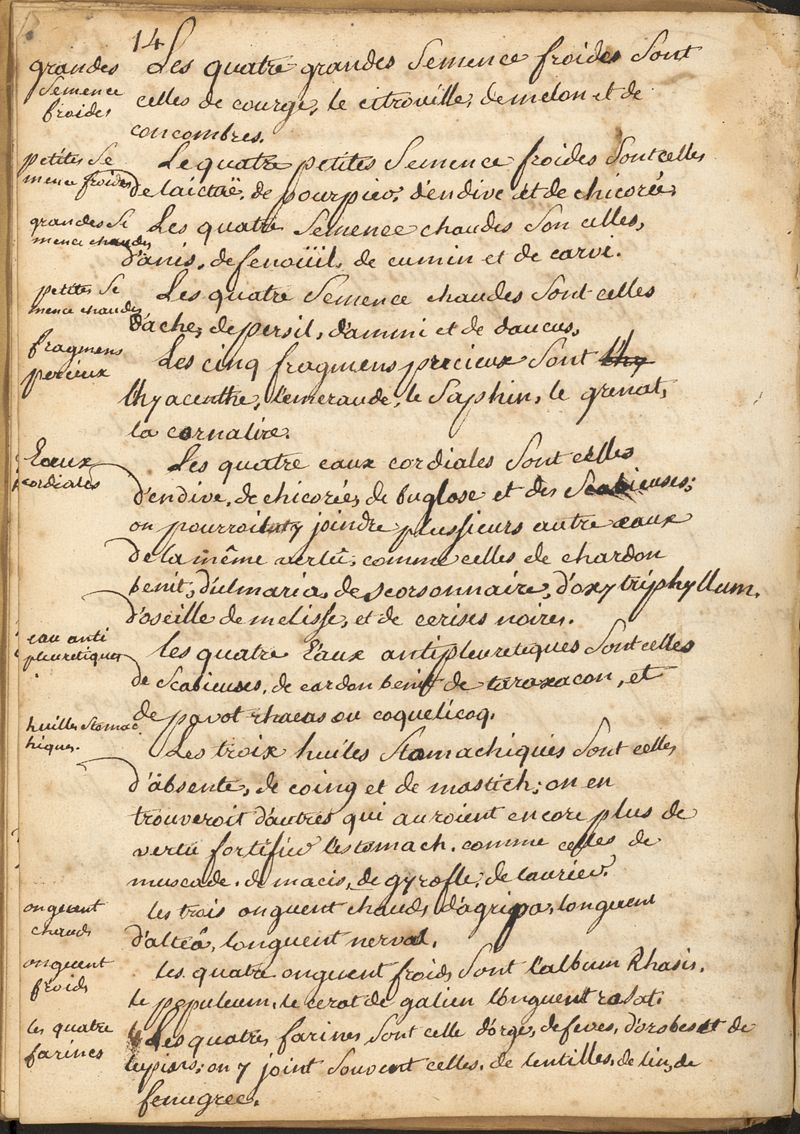 14
grandes
Semence
froides
Les quatre grandes Semence froides Sont
celles de courge, le citroville, de melon et de
concombres.
petites Se
mence froides
Le quatre petites Semence froides Sont celles
de laictuë, de pourpier, d'endive et de chicorée,
grandes Se
mence chaudes
Les quatre Semence chaudes Son celles,
d'anis, de fenoüil, de cumin et de carvi.
petites Se
mence chaudes
Les quatre Semence chaudes Sont celles
d'ache, de persil, d'ammi et de daucus,
fragmens
precieux
Les cinq fragmens precieux Sont l'hy
lhyacenthe, l'emeraude, le Saphir, le grenat,
la cornaline.
Eaux
cordiales
Les quatre eaux cordiales Sont celles
d'endive, de chicorée, de buglose et des Scabieuses;
on pourroit y joindre plussieurs autre eaux
de la même vertû, comme celles de chardon
benit, d'ulmaria, de scorsonnaire, d'oxytriphyllum,
d'oseille de melisse, et de cerises noires.
eau anti
pleuretiques
les quatre Eaux antipleuretiques Sont celles
de Scabieuses, de cardon benit de taraxacon, et
de pavot rhaeas ou coquelicoq.
huilles stomac
hiques.
Les troix huiles Stomachiques Sont celles
d'absente, de coing et de mastich; on en
trouveroit d'autres qui auroient encore plus de
vertû fortifier lestomach. comme celles de
muscade, de macis, de gyrofle, de laurier.
onguent
chauds
les trois onguent chauds d'agripa, longuent
d'alteâ, longuent nerval,
onguent
froids
les quatre onguent froids Sont l'album Rhasis,
le populeum, le cerat de galien l'onguent rosat.
les quatre
farines
Les quatres farines Sont celle d'orge, de feves, d'orobes et de
lupins; on y joint Souvent celles, de lentilles, de lin, de
fenugrec.